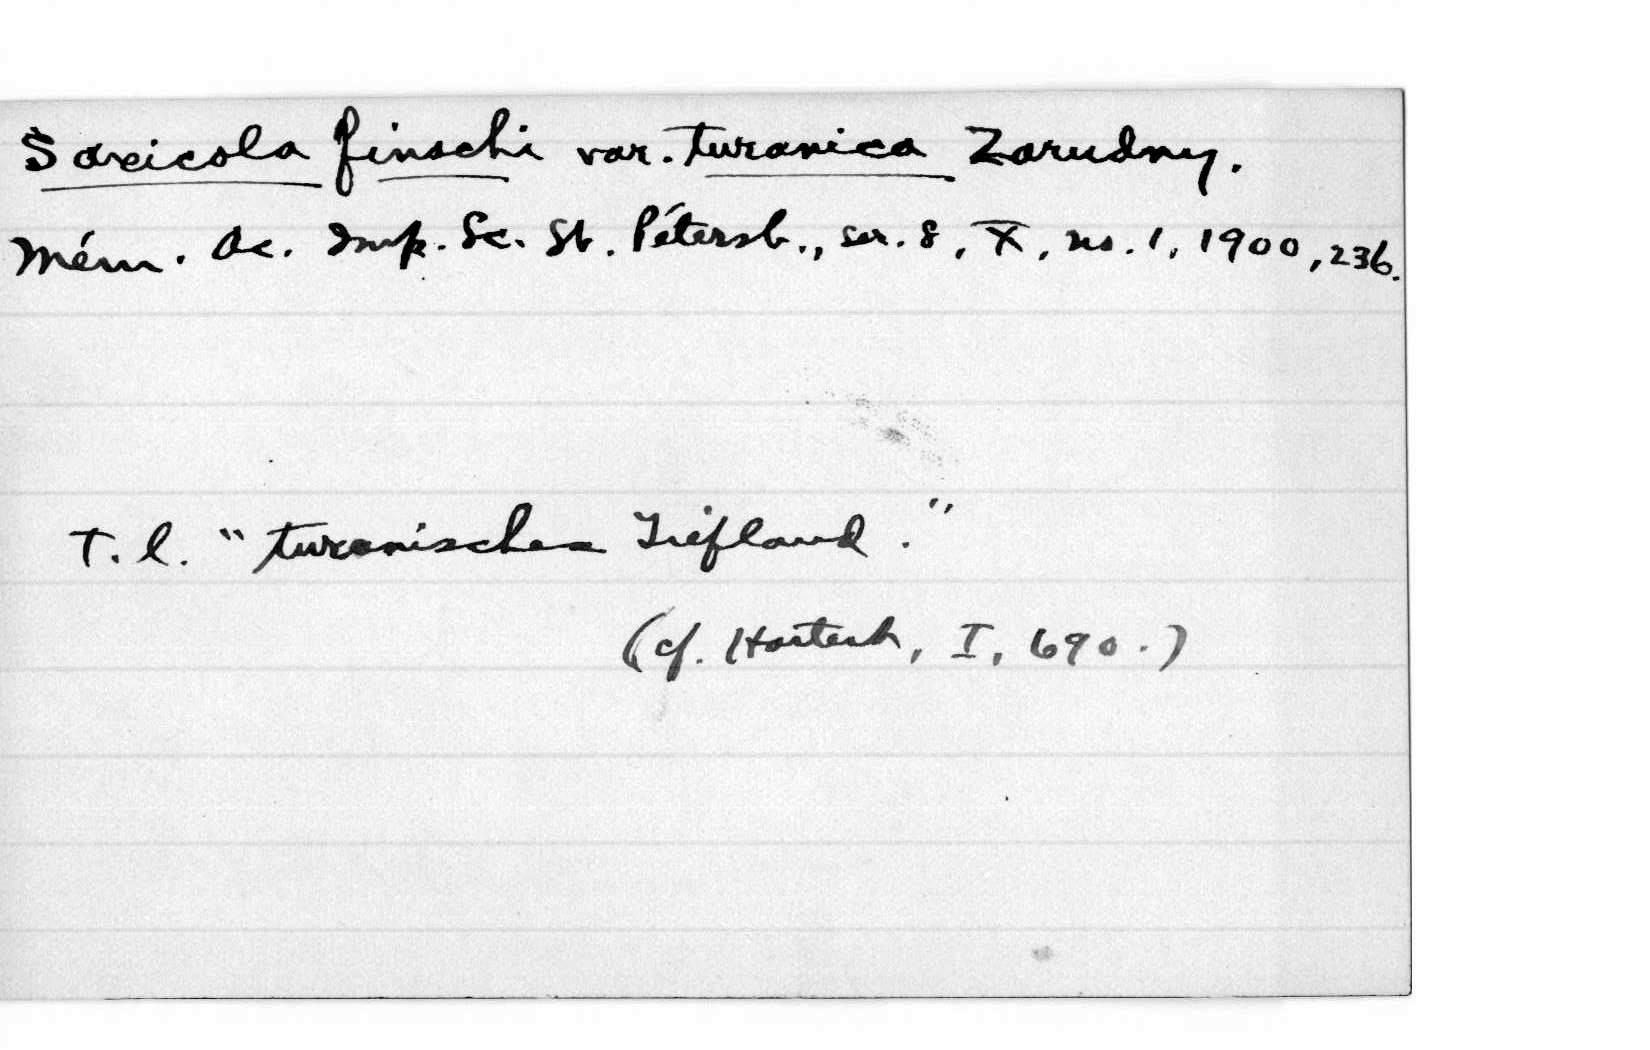 Saxicola finschi var. turanica Zarudny.
Mém. Ac. Imp. Sc. St. Pétersb., ser. 8, X, no. 1, 1900, 236.
T. l. "turanisches Tiefland."
(cf. Hartert, I, 690.)